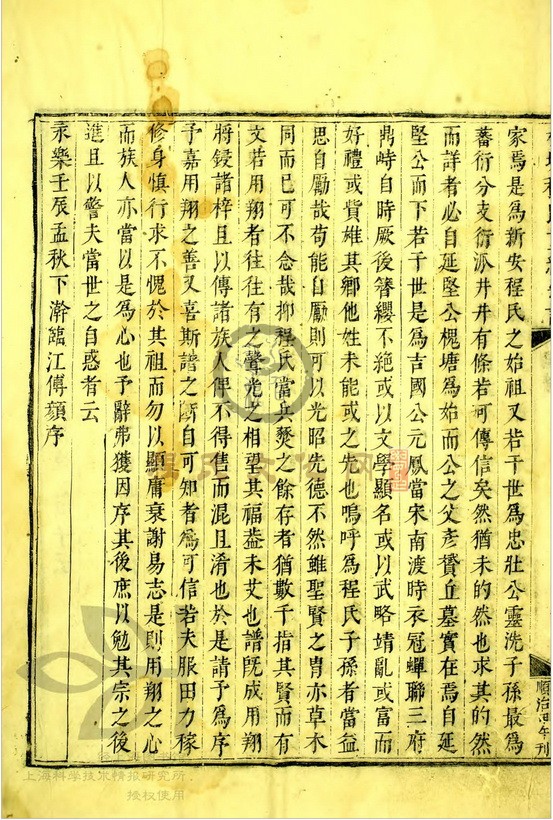 家焉是爲新安程氏之始祖又若干世爲忠壯公靈洗子孫最爲
蕃衍分支衍派井井有條若可傳信矣然猶未的然也求其的然
而詳者必自延堅公槐塘爲始而公之父彥賛丘墓實在焉自延
堅公而下若干世是爲吉國公元鳳當宋南渡時衣冠蟬聯三府
鼎峙自時厥後簪纓不絶或以文學顯名或以武略靖亂或富而
好禮或貲雄其鄉他姓未能或之先也嗚呼爲程氏子孫者當益
思自勵哉苟能自勵則可以光昭先德不然雖聖賢之胄亦草木
同而已可不念哉抑程氏當兵燹之餘存者猶數千指其賢而有
文若用翔者往往有之聲光之相望其福葢未艾也譜旣成用翔
將鋟諸梓且以傳諸族人俾不得售而混且淆也於是請予爲序
予嘉用翔之善又喜斯譜之斷自可知者爲可信若夫服田力穡
修身慎行求不愧於其祖而勿以顯庸衰謝易志是則用翔之心
而族人亦當以是爲心也予辭弗獲因序其後庶以勉其宗之後
進且以警夫當世之自惑者云
永樂壬辰孟秋下澣臨江傅顔序
順治四年刊
上海科学技术情报研究所
授权使用